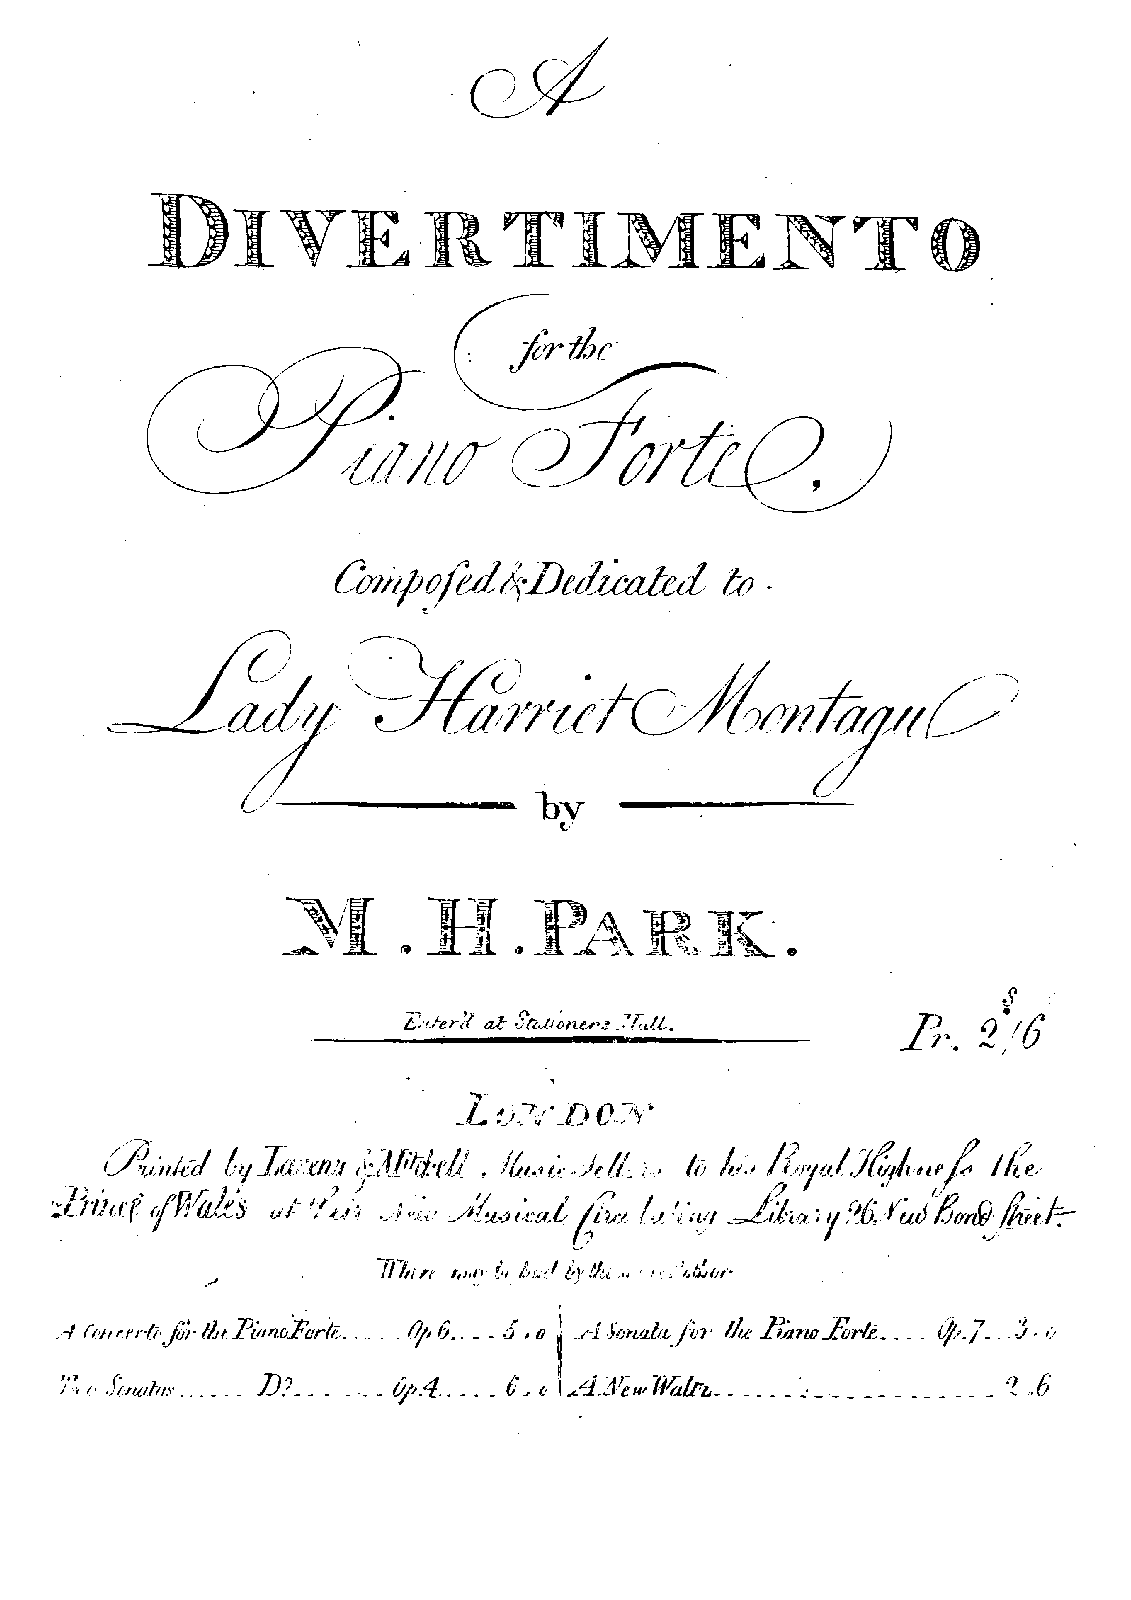 A
DIVERTIMENTO
for the
Piano Forte.
Compoſed & Dedicated to
Lady Harriet Montagu
by
M. H. PARK.
Enter'd at Stationers Hall.
Pr. 2s/6
LONDON
Printed by Lavenu & Mitchell Music Sellers to his Royal Highneſs the
Prince of Wales at their New Musical Circulating Library 26 New Bond Street.
Where may be had by the same Author
A Concerto for the Piano Forte..... Op 6.... 5.0 A Sonata for the Piano Forte.... Op. 7... 3.0
Two Sonatas...... Do....... Op. 4..... 6.0 A New Waltz.................... 2.6